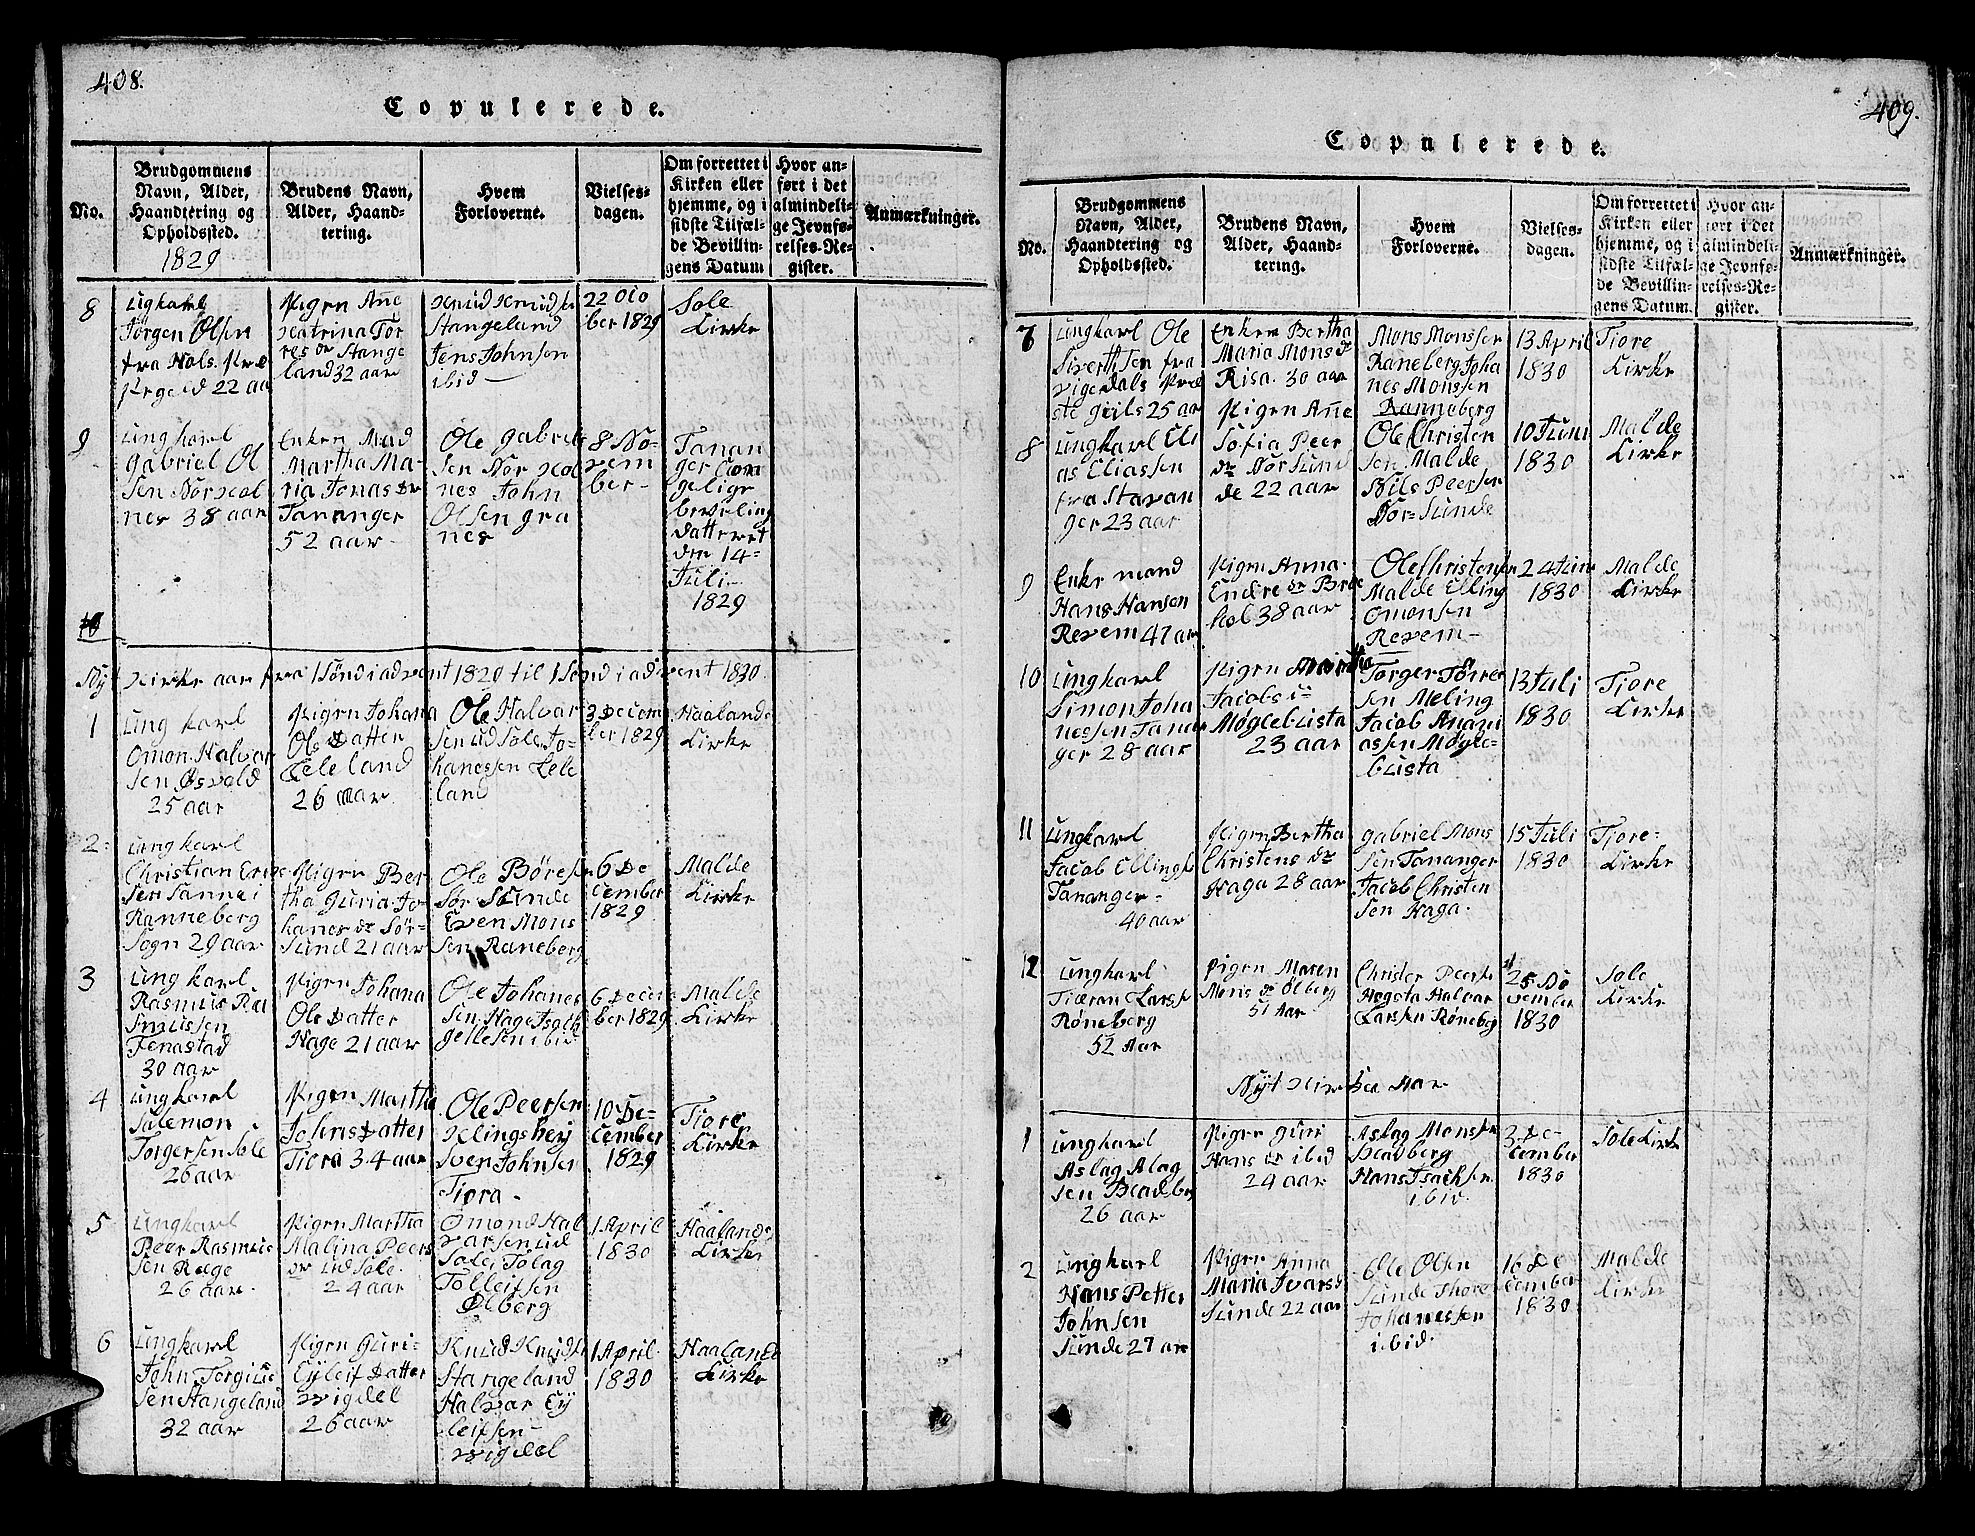 408.
Copulerede.
No.
Brudgommens
Navn, Alder,
Haandtering og
Opholdssted.
1829
Brudens Navn,
Alder, Haand-
tering.
Hvem
Forloverne.
Vielses-
dagen.
Om forrettet i
Kirken eller
hjemme, og i
sidste Tilfæl-
de Bevillin-
gens Datum
Hvor an-
ført i det
almindeli-
ge Jevnfø-
relses-Re-
gister.
Anmærkninger.
8
Ungkarl
Jørgen Olsen
fra Hols. Præ
22 aar
Pigen Ane
Katrina Tør
res dr Stange
land 32 aar
Knud Knuds
Stangeland
Jens Johnsen
ibid
22 Oto
ber 1829
Sole
Kirke
9
Ungkarl
Gabriel Ol
sen Nørxol
nes 38 aar
Enken Mad
Martha Ma-
ria Jonas dr
Tananger
52 aar
Ole Gabriels
sen Nør xol
nes John
Olsen Gra
nes
8 No-
vem
ber
Tanan
ger
bevveling
Datteret
den 14-
Juli
1829
10
Nyt Kirke aar fra 1 Sønd i advent 1820 til 1 Sønd i advent 1830
1
Ung karl
Omon Halvar
sen Øsvold
25 aar
Pigen Johana
Ols Datter
Leleland
26 aar
Ole Halvar
sen ud Sole Jo-
hanessen Lele
land
3 Decem
ber 1829
Haalands
Kirke
2
Ungkarl
Christian Eriks
sen Sanne i
Ranneberg
Sogn 29 aar
Pigen Ber
tha Guria Jo-
hanes dr Sør-
Sund 21 aar
Ole Børesen
Sør Sunde
Even Mons
sen Raneberg
6 De
cember
1829
Malde
Kirke
3
Ung karl
Rasmus Ras
smussen
Jenastad
30 aar
Pigen Johana
Ols Datter
Hage 21 aar
Ole Johanes
sen Hage Isach
gellesen ibid
6 Decem
ber 1829
Malde
Kirke
4
Ungkarl
Salemon
Torgersen Sole
26 aar
Pigen Martha
Johns Datter
Tiora 34 aar
Ole Peersen
Klingshey
Sven Johnsen
Tiora
10 De-
cember
1829
Tiore
Kirke
5
Ungkarl
Peer Rasmus
sen Rege
26 aar
Pigen Martha
Malina Peers
dr Ud Sole
24 aar
Omond Hal
varsen ud
Sole Tolag
Tolleifsen
Ølberg
1 April
1830
Haalands
Kirke
6
Ungkarl
John Torgius
sen Stangeland
32 aar
Pigen Guri-
Eyleif Datter
Vigdel
26 aar
Knud Knuds
Stangeland
Halvar Ey
leifsen
Vigdel
1 April
1830
Haalands
Kirke
409.
Copulerede.
No.
Brudgommens
Navn, Alder,
Haandtering og
Opholdssted.
Brudens Navn,
Alder, Haand-
tering.
Hvem
Forloverne.
Vielses-
dagen.
Om forrettet i
Kirken eller
hjemme, og i
sidste Tilfæl-
de Bevillin-
gens Datum.
Hvor an-
ført i det
almindeli-
ge Jevnfø-
relses-Re-
gister.
Anmærkninger.
7
Ungkarl Ole
Siverthsen fra
Vigedals Præ
ste giels 25 aar
Enken Bertha
Maria Mons dr
Risa. 30 aar
Mons Monssen
Raneberg Joha
nes Monssen
Ranneberg
13 April
1830
Tiore
Kirke
8
Ungkarl Eli
as Eliassen
fra Stavan
ger 23 aar
Pigen Ane
Sofia Peer
dr Nør Sund
de 22 aar
Ole Christen
sen Malde
Nils Peersen
Nør-Sunde
10 Juni
1830
Malde
Kirke
9
Enke mand
Hans Hansen
Revem 47 aar
Pigen Anna
Endre dr Bræ
kol 38 aar
Ole Christensen
Malde Elling
Omonsen
Revem
24 Juni
1830
Malde
Kirke
10
Ungkarl
Simon Joha
nessen Tanan
ger 28 aar
Pigen Martha
Jacobs dr
Møglebusta
23 aar
Torger Tørres
sen Meling
Jacob Anani
assen Møgle-
busta
13 Juli
1830
Tiore
Kirke
11
Ungkarl
Jacob Ellings
Tananger
40 aar
Pigen Bertha
Christens dr
Haga 28 aar
Gabriel Mons
sen Tananger
Jacob Christen
sen Haga
15 Juli
1830
Tiore
Kirke
12
Ungkarl
Tiøran Larss
Røneberg
52 Aar
Pigen Maren
Mons dr Ølberg
51 Aar
Christen Peersen
Hogsta Halvar
Larssen Røneberg
25 No
vember
1830
Sole
Kirke
Nyt Kirkee Aar
1
Ungkarl
Aslag Alag
sen
26 aar
Pigen Guri
Hans dr ibid
24 aar
Aslag Monssen
Hans Isachsen
ibid.
3 De-
cember
1830
Sole Kirke
2
Ungkarl
Hans Petter
Johnsen
Sunde 27 aar
Pigen Anna
Maria Ivars dr
Sunde 22 aar
Ole Olsen
Sunde Thore
Johanessen
ibid.
16 De
cember
1830
Malde
Kirke